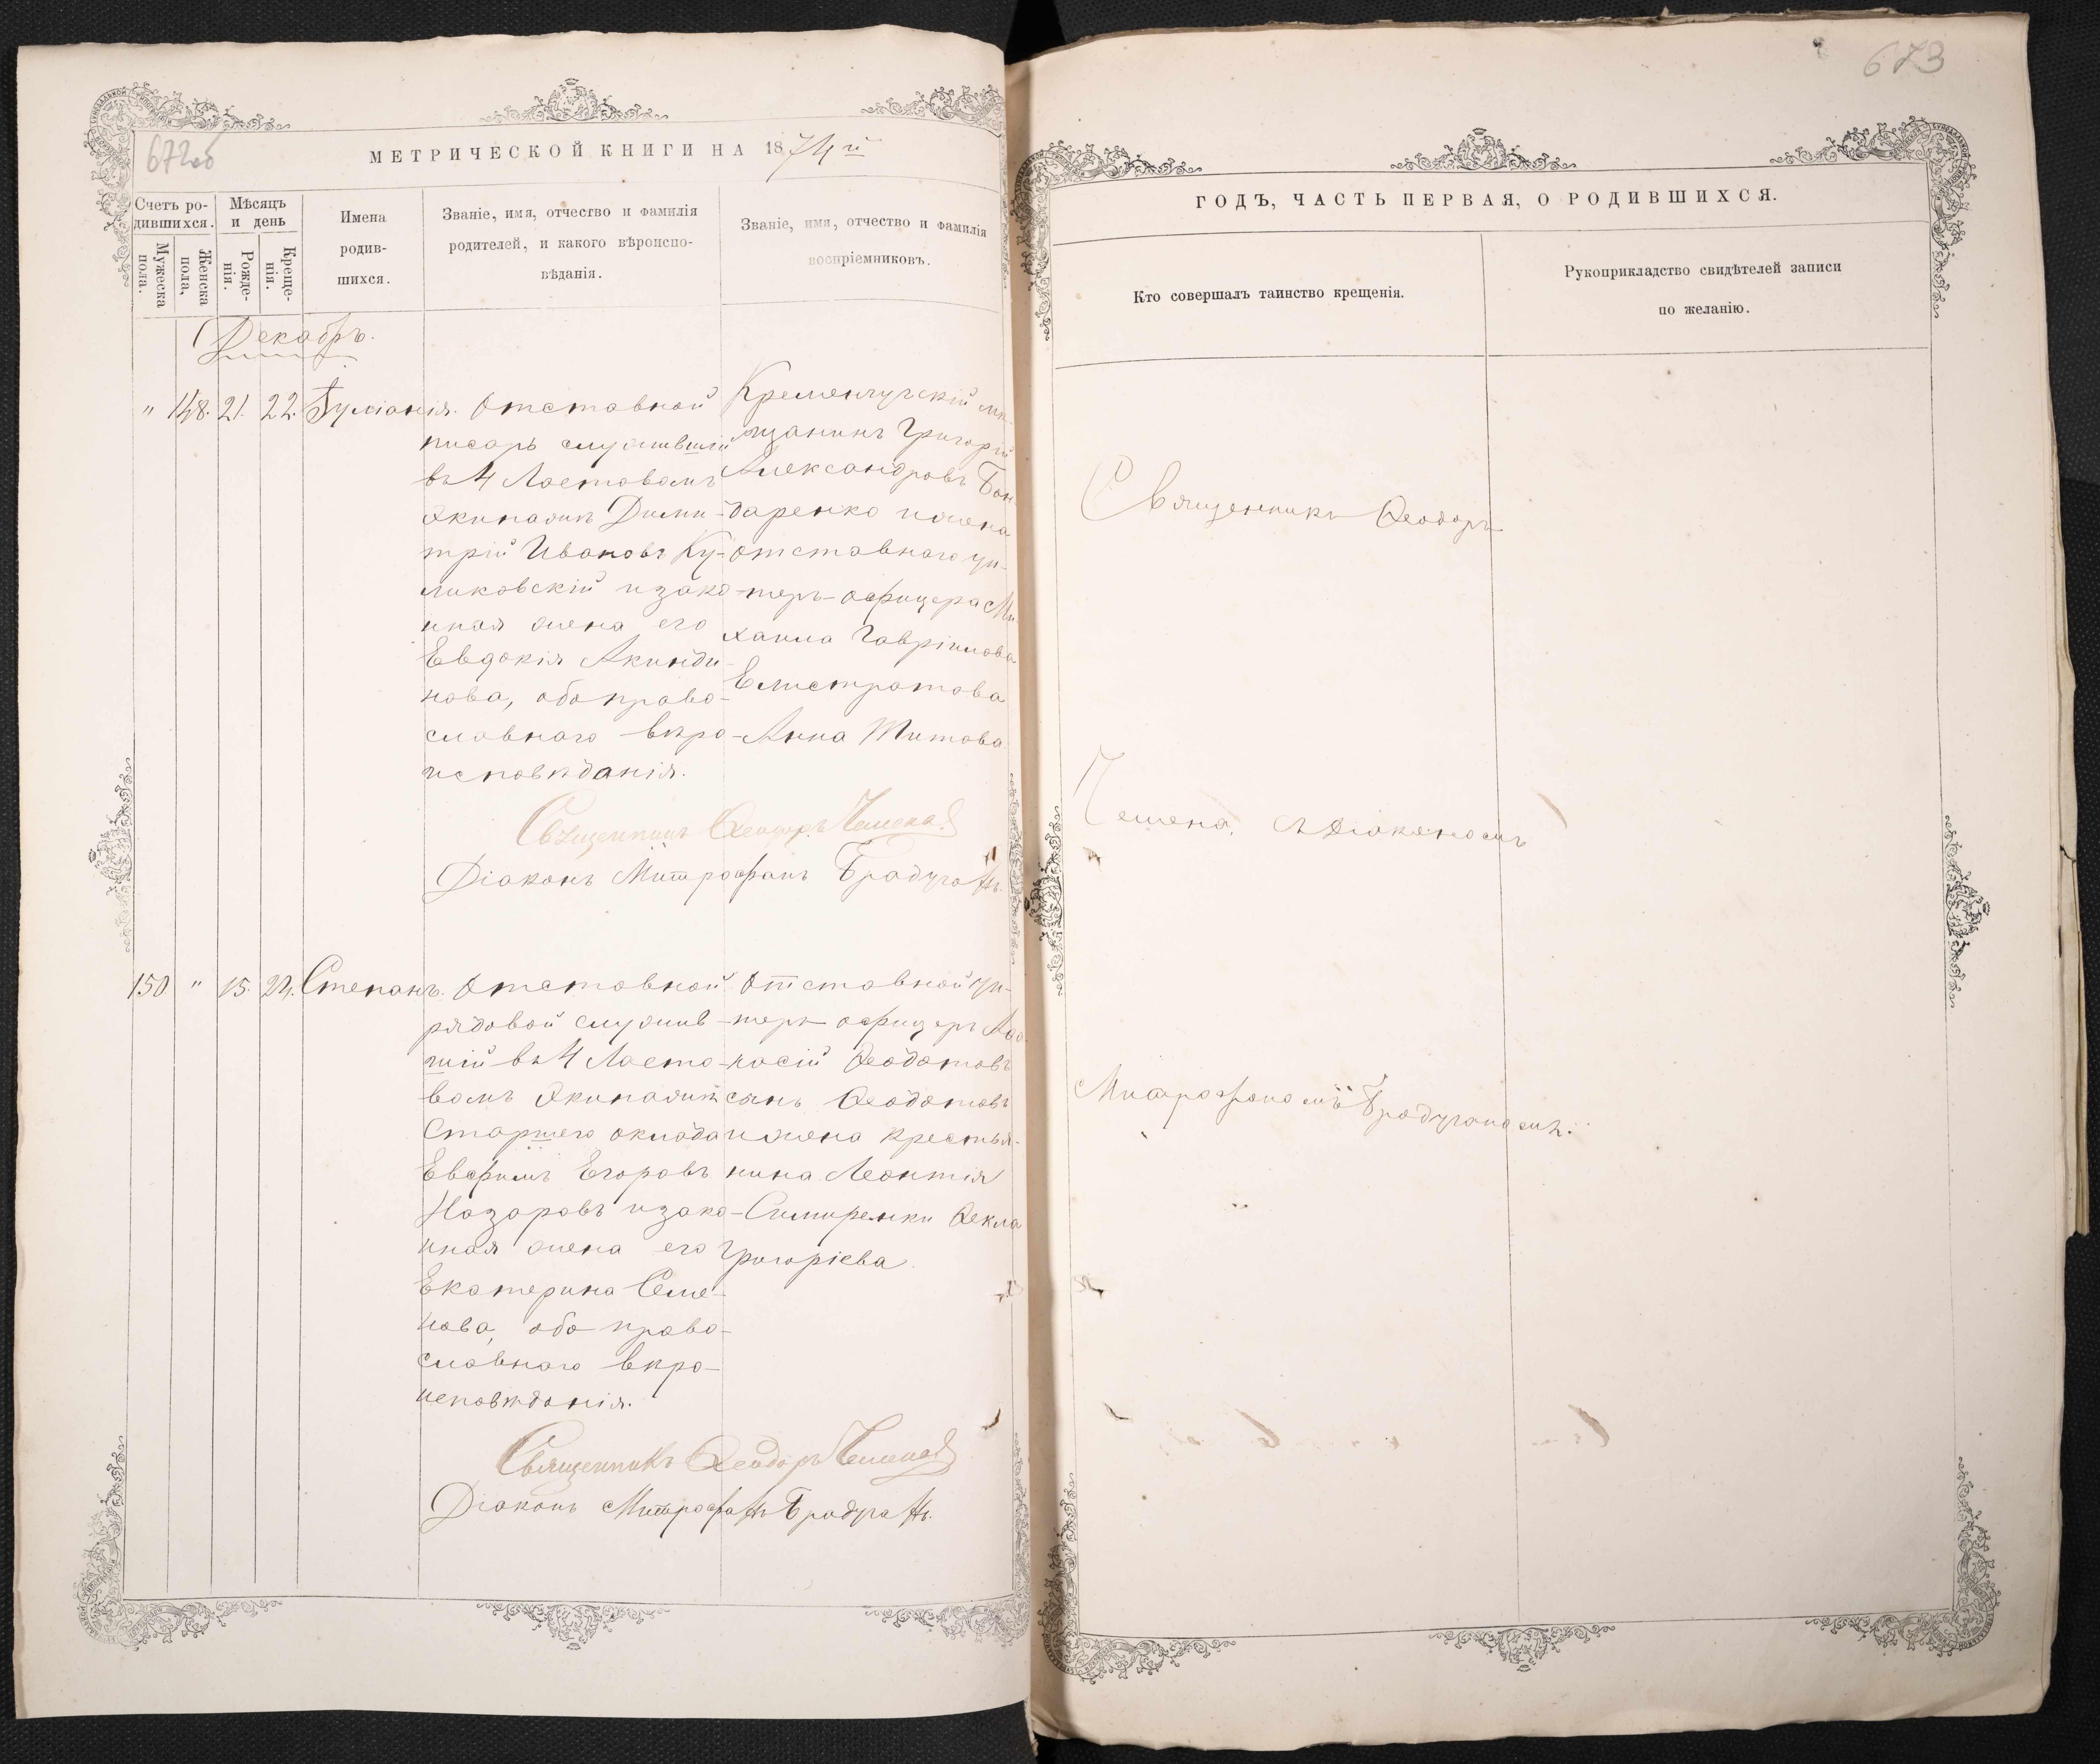 672об
МЕТРИЧЕСКОЙ КНИГИ НА 1874й
Счетъ ро-
дившихся.
Мужеска
пола.
Женска
пола,
Мѣсяцъ
и день
Рожде-
нія.
Креще-
нія.
Имена
родив-
шихся.
Званіе, имя, отчество и фамилія
родителей, и какого вѣроиспо-
вѣданія.
Званіе, имя, отчество и фамилія
воспріемниковъ.
Декабрь.
" 148. 21. 22. Іуліанія.
Отставной
писарь служившій
въ 4 Ластовомъ
Экипажѣ Дими-
трій Ивановъ Ку-
ликовскій и зако-
нная жена его
Евдокія Акинди-
нова, оба право-
славнаго вѣро-
исповѣданія.
Кременчугскій мѣ-
щанинъ Григорій
Александровъ Бон-
даренко и жена
отставнаго ун-
теръ-офицера Ми-
хаила Гавріилова
Елистратова
Анна Титова
Священникъ Ѳеодоръ Чемена
Діаконъ Митрофанъ Брадучанъ.
150 " 15. 22. Степанъ.
Отставной
рядовой служив-
шій въ 4 Ласто-
вомъ Экипажѣ
Старшего оклада
Евфимъ Егоровъ
Назаровъ и зако-
нная жена его
Екатерина Семе-
нова, оба право-
славнаго вѣро-
исповѣданія.
Отставной ун-
теръ офицеръ Аѳа-
насій Ѳеодотовъ
сынъ Ѳеодотовъ
и жена крестья-
нина Леонтія
Симиренки Ѳекла
Григоріева
Священникъ Ѳеодоръ Чемена
Діаконъ Митрофанъ Брадучанъ.
673
ГОДЪ, ЧАСТЬ ПЕРВАЯ, О РОДИВШИХСЯ.
Кто совершалъ таинство крещенія.
Рукоприкладство свидѣтелей записи
по желанію.
Священникъ Ѳеодоръ
Чемена, съ Діакономъ
Митрофаномъ Брадучаномъ.